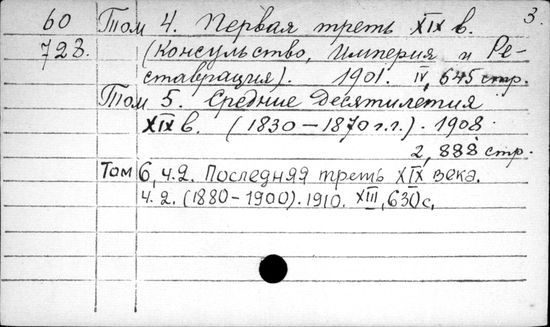 3.
60 Том 4. Первая треть XIX в.
723. (Консульство, Империя и Ре-
ставрация). 1901. IV, 645 стр.
Том 5. Средние десятилетия
XIX в. (1830-1870 г.г.). 1908.
2, 888 стр.
Том 6, ч.2. Последняя треть XIX века.
ч. 2. (1880-1900). 1910. XIII, 630 с.